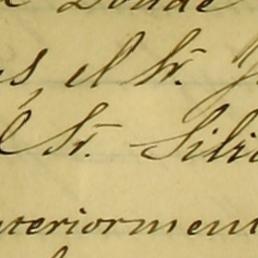 Donde
s, el Sr. J
el Sr. Silic
nteriorment